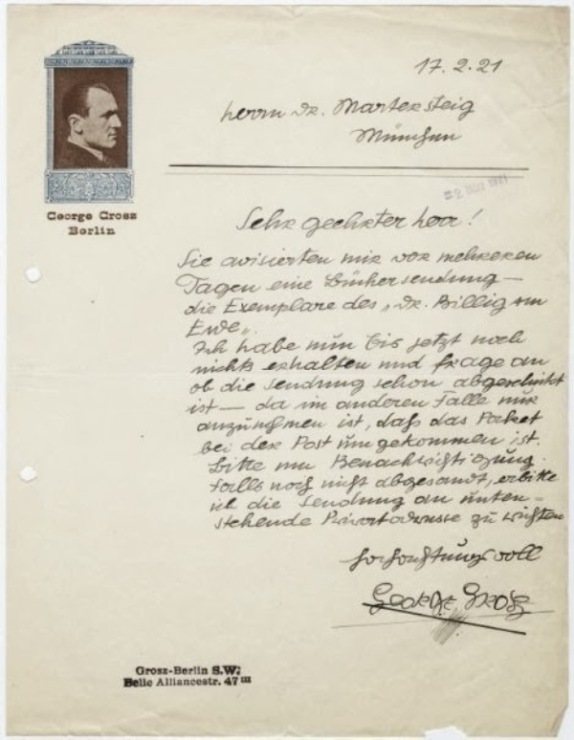 17.2.21
Herrn Dr. Martersteig
München
George Grosz
Berlin
Sehr geehrter Herr!
Sie avisierten mir vor mehreren
Tagen eine Büchersendung —
die Exemplare des „Dr. Billig am
Ende„.
Ich habe nun bis jetzt noch
nichts erhalten und frage an
ob die Sendung schon abgeschickt
ist — da im anderen Falle nur
anzunehmen ist, daß das Packet
bei der Post umgekommen ist.
Bitte um Benachrichtigung.
Falls noch nicht abgesandt, erbitte
ich die Sendung an unten=
stehende Privatadresse zu richten
Hochachtungsvoll
George Grosz
Grosz-Berlin S.W.
Belle Alliancestr. 47 III